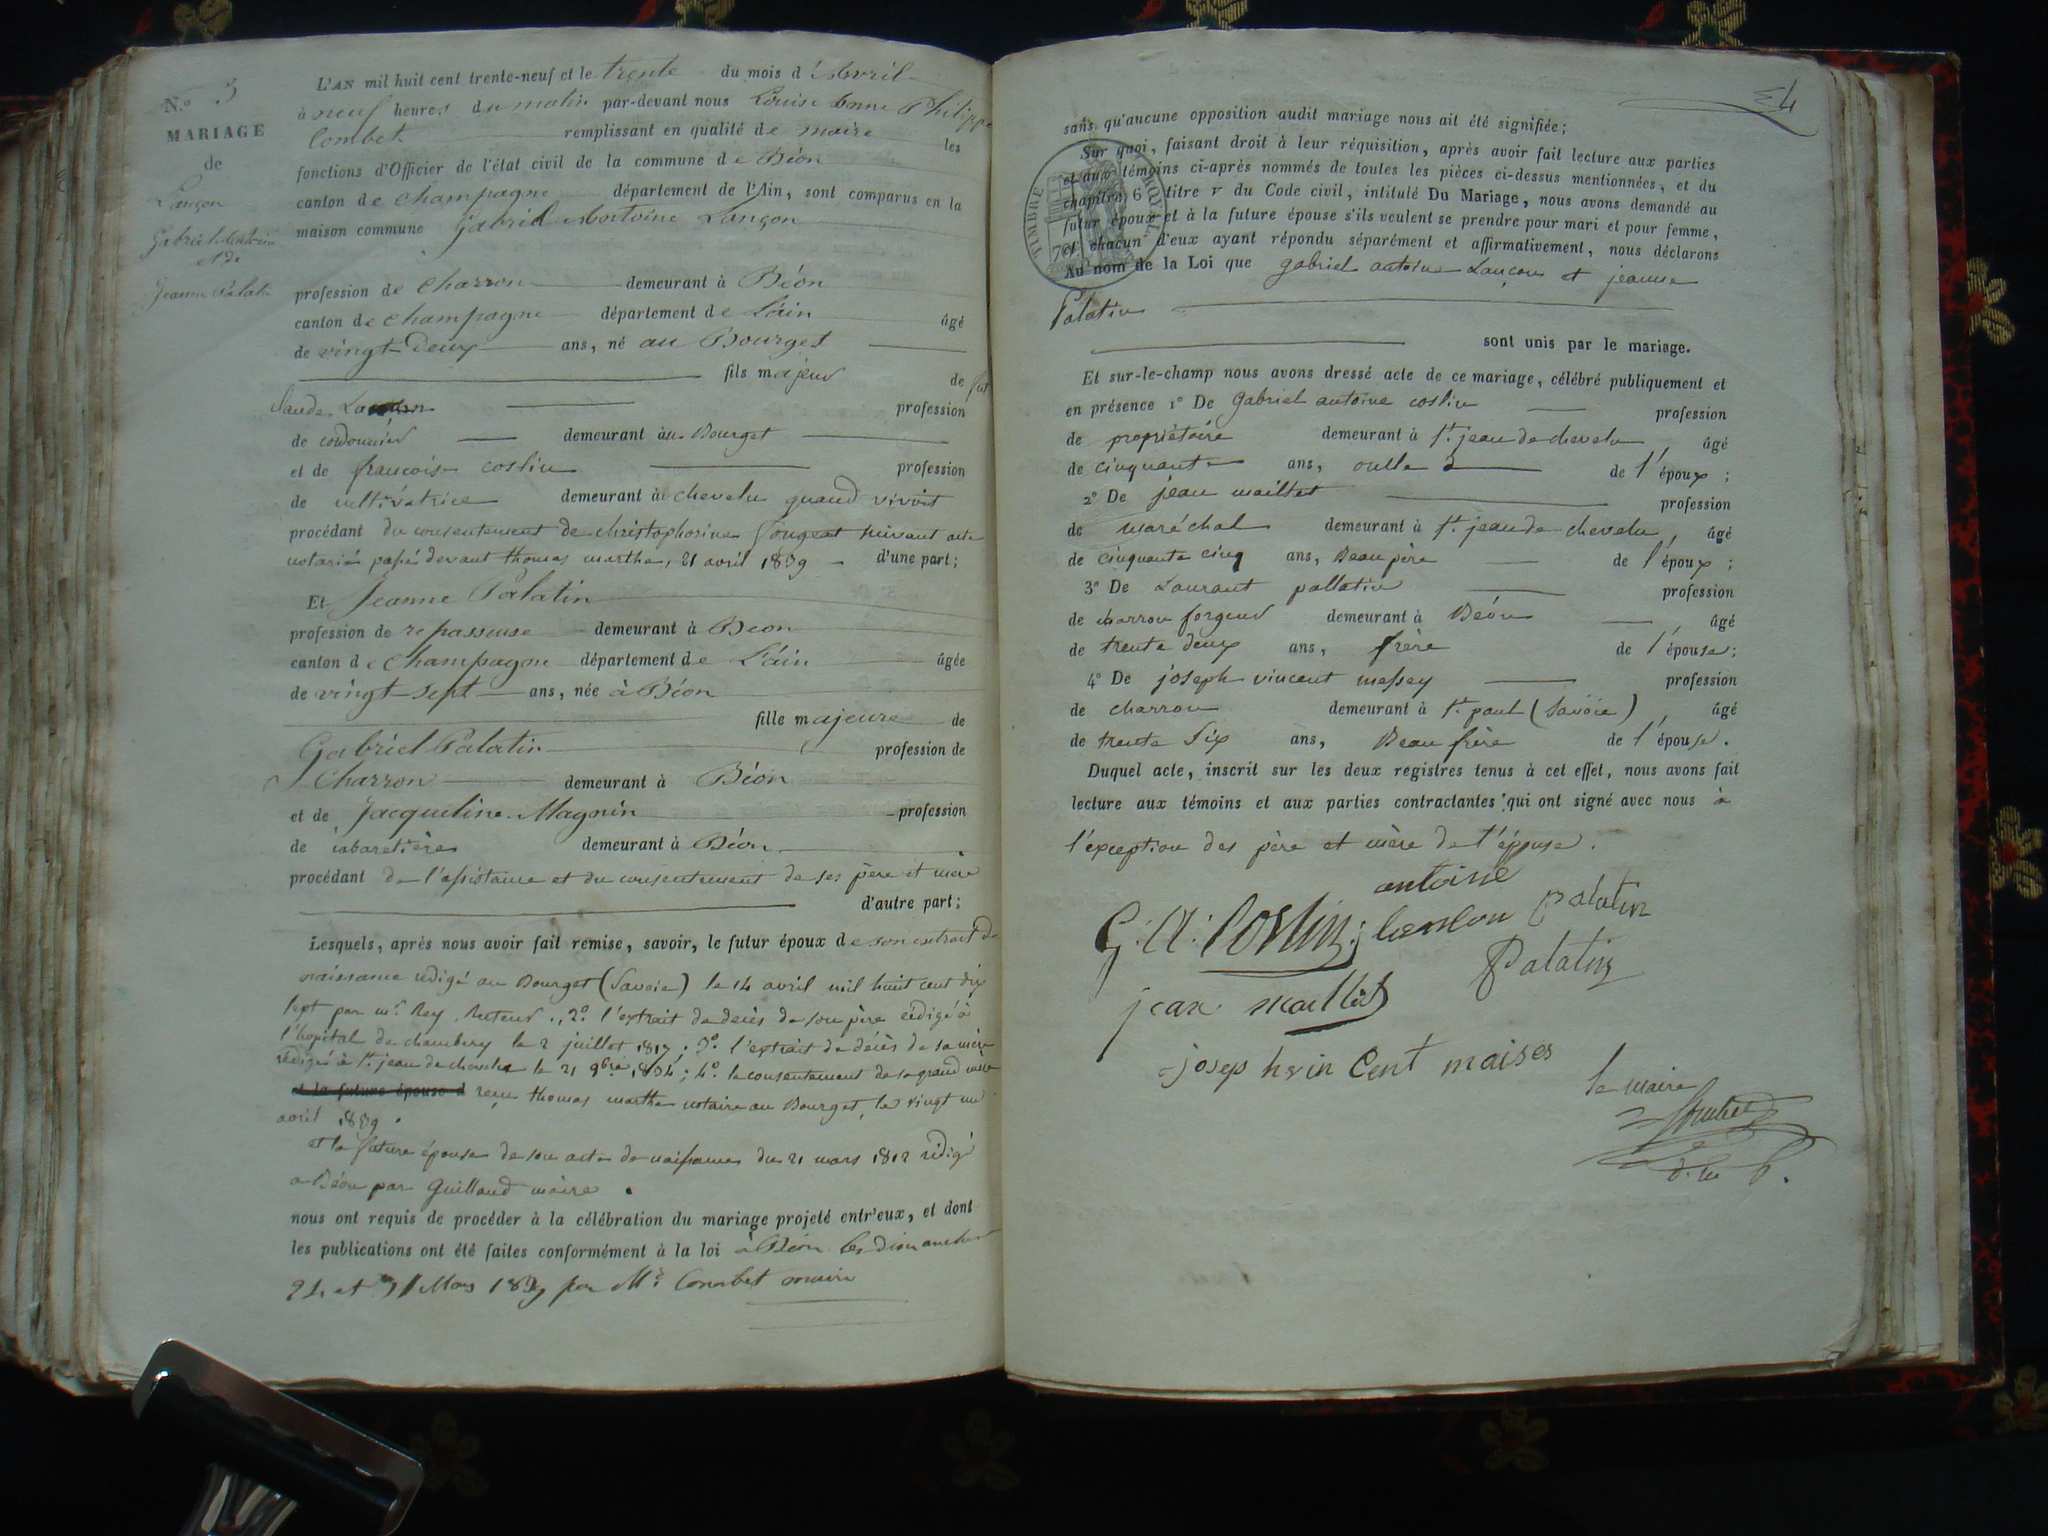 N.º 3
MARIAGE
de
Lançon
Gabriel Antoine
et de
Jeanne Palatin
L'AN mil huit cent trente-neuf et le trente du mois d'Avril
à neuf heures du matin par-devant nous Louise Anne Philippe
Combet remplissant en qualité de maire les
fonctions d'Officier de l'état civil de la commune de Béon
canton de champagne département de l'Ain, sont comparus en la
maison commune Gabriel Antoine Lançon
profession de Charron demeurant à Béon
canton de champagne département de L'ain âgé
de vingt-Deux ans, né au Bourget
fils majeur de fut
Claude profession
de cordonnier demeurant au Bourget
et de francoise costin profession
de cultivatrice demeurant à chevelu quand vivoit
procédant du consentement de christophorine suivant acte
notarié passé devant thomas marthe, 21 avril 1839 d'une part;
Et Jeanne Palatin
profession de repasseuse demeurant à Béon
canton de champagne département de L'ain âgée
de vingt-sept ans, née à Béon
fille majeure de
Gabriel Palatin profession de
Charron demeurant à Béon
et de Jacqueline Magnin profession
de cabaretière demeurant à Béon
procédant de l'assistance et du consentement de ses père et mère
d'autre part;
Lesquels, après nous avoir fait remise, savoir, le futur époux de son extrait de
naissance rédigé au Bourget (Savoie) le 14 avril mil huit cent dix
sept par mr. Rey Recteur, 2º l'extrait de décès de son père rédigé à
l'hopital de chambery le 2 juillet 1817; 3º l'extrait de décès de sa mère
rédigé à St. jean de chevelu le 21 9bre 1834; 4º le consentement de sa grand mère
et la future épouse d reçu thomas marthe notaire au Bourget, le vingt un
avril 1839.
et la future épouse de son acte de naissance du 21 mars 1812 rédigé
a Béon par Guilland maire.
nous ont requis de procéder à la célébration du mariage projeté entr'eux, et dont
les publications ont été faites conformément à la loi à Béon les dimanches
24 et 31 Mars 1839 par Mr. Combet maire
sans qu'aucune opposition audit mariage nous ait été signifiée;
Sur quoi, faisant droit à leur réquisition, après avoir fait lecture aux parties
et aux témoins ci-après nommés de toutes les pièces ci-dessus mentionnées, et du
chapitre 6 titre v du Code civil, intitulé Du Mariage, nous avons demandé au
futur époux et à la future épouse s'ils veulent se prendre pour mari et pour femme,
et chacun d'eux ayant répondu séparément et affirmativement, nous déclarons
Au nom de la Loi que gabriel antoine Lançon et jeanne
Palatin
sont unis par le mariage.
TIMBRE ROYAL
Et sur-le-champ nous avons dressé acte de ce mariage, célébré publiquement et
en présence 1º De Gabriel antoine costin profession
de propriétaire demeurant à St. jean de chevelu, âgé
de cinquante ans, oncle de l'époux;
2º De jean maillet profession
de maréchal demeurant à St. jean de chevelu, âgé
de cinquante cinq ans, Beau père de l'époux;
3º De Laurant pallatin profession
de charron forgeur demeurant à Béon âgé
de trente deux ans, frère de l'épouse;
4º De joseph vincent messey profession
de charron demeurant à St. paul (Savoie), âgé
de trente six ans, Beau frère de l'épouse.
Duquel acte, inscrit sur les deux registres tenus à cet effet, nous avons fait
lecture aux témoins et aux parties contractantes qui ont signé avec nous à
l'exception des père et mère de l'épouse.
antoine
G. A. Costin Palatin
Palatin
jean maillet
joseph vin Cent maises
le maire